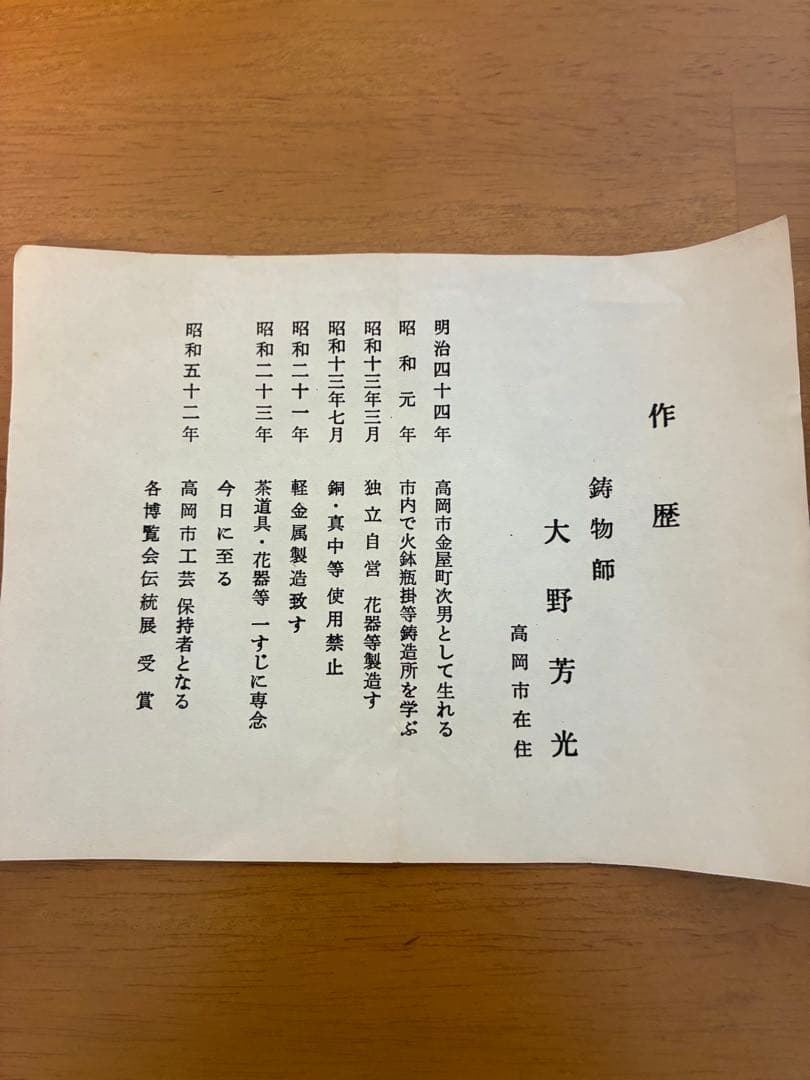 作歴
鋳物師
大野芳光
高岡市在住
明治四十四年 高岡市金屋町次男として生れる
昭和元年 市内で火鉢瓶掛等鋳造所を学ぶ
昭和十三年三月 独立自営 花器等製造す
昭和十三年七月 銅・真中等使用禁止
昭和二十一年 軽金属製造致す
昭和二十三年 茶道具・花器等一すじに専念
今日に至る
昭和五十二年 高岡市工芸保持者となる
各博覧会伝統展 受賞